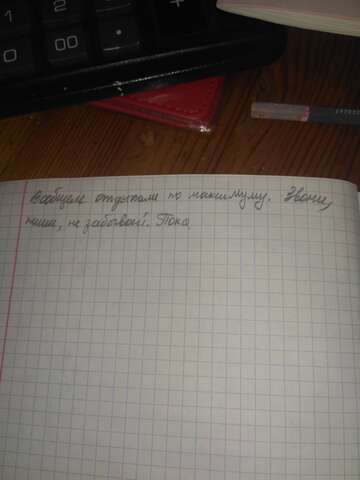 1 2
0 00 . +
Вообщем отдыхали по максимуму. Звони,
пиши, не забывай. Пока